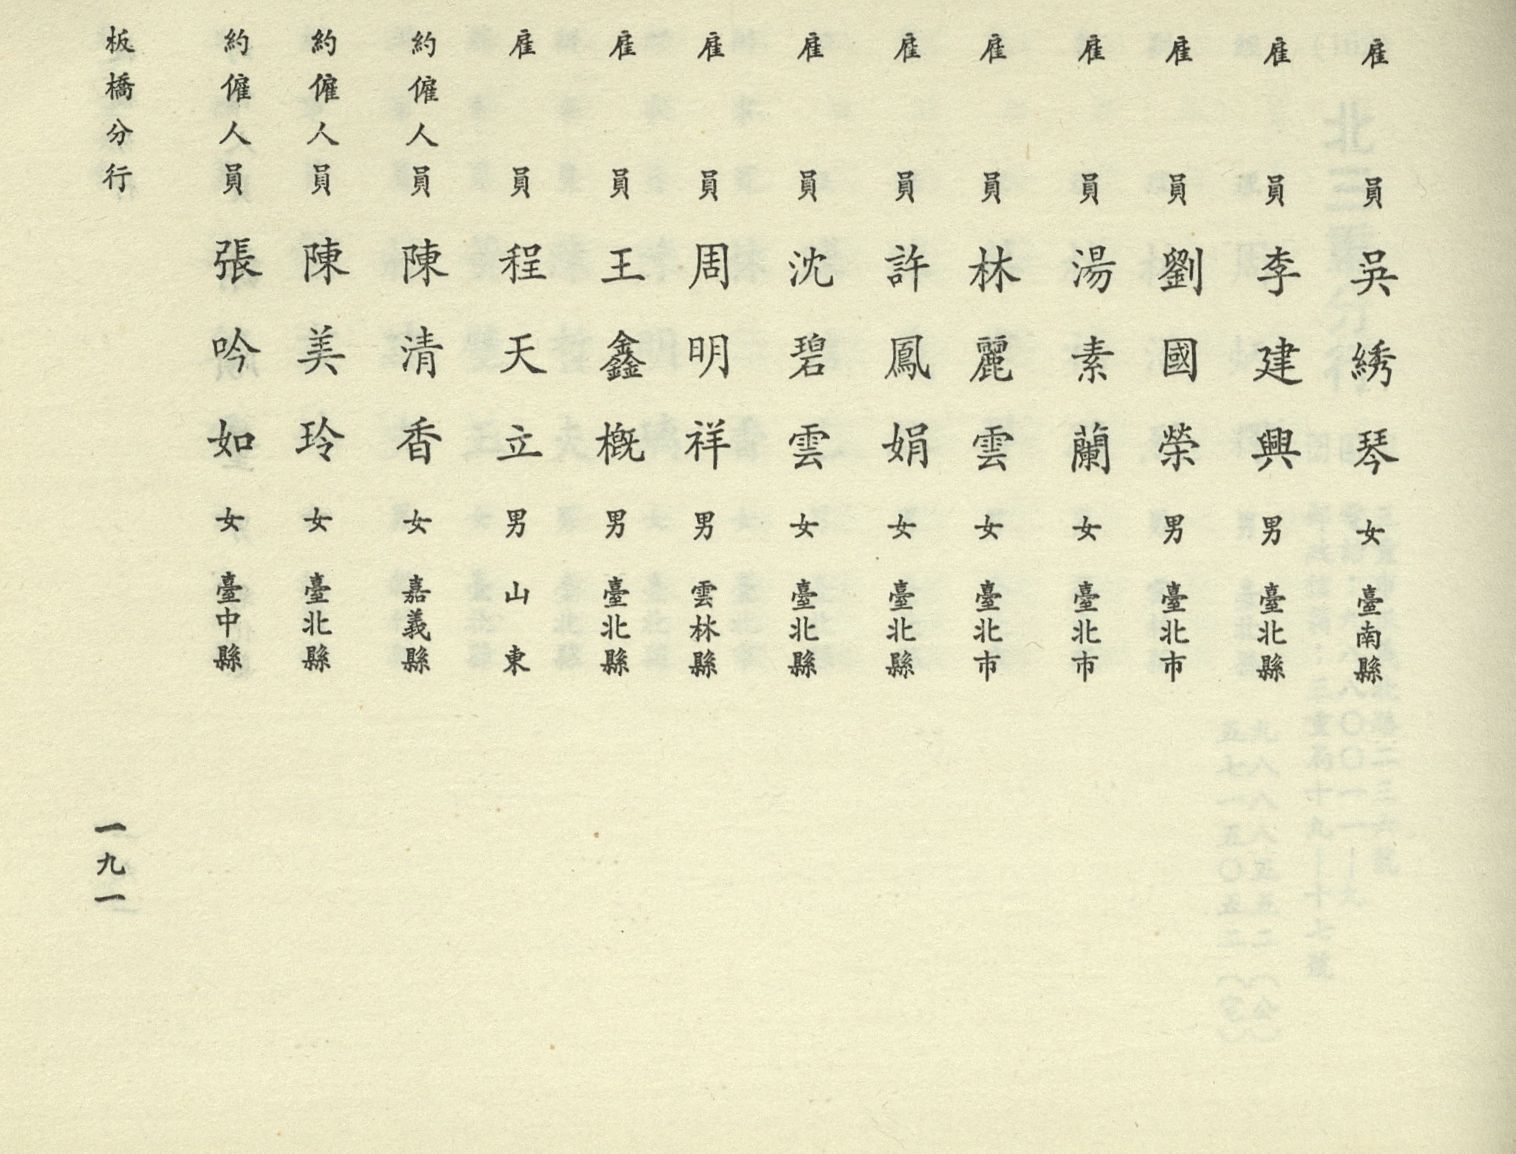 雇員 吳綉琴 女 臺南縣
雇員 李建興 男 臺北縣
雇員 劉國榮 男 臺北市
雇員 湯素蘭 女 臺北市
雇員 林麗雲 女 臺北市
雇員 許鳳娟 女 臺北縣
雇員 沈碧雲 女 臺北縣
雇員 周明祥 男 雲林縣
雇員 王鑫概 男 臺北縣
雇員 程天立 男 山東
約僱人員 陳清香 女 嘉義縣
約僱人員 陳美玲 女 臺北縣
約僱人員 張吟如 女 臺中縣
板橋分行
一九一